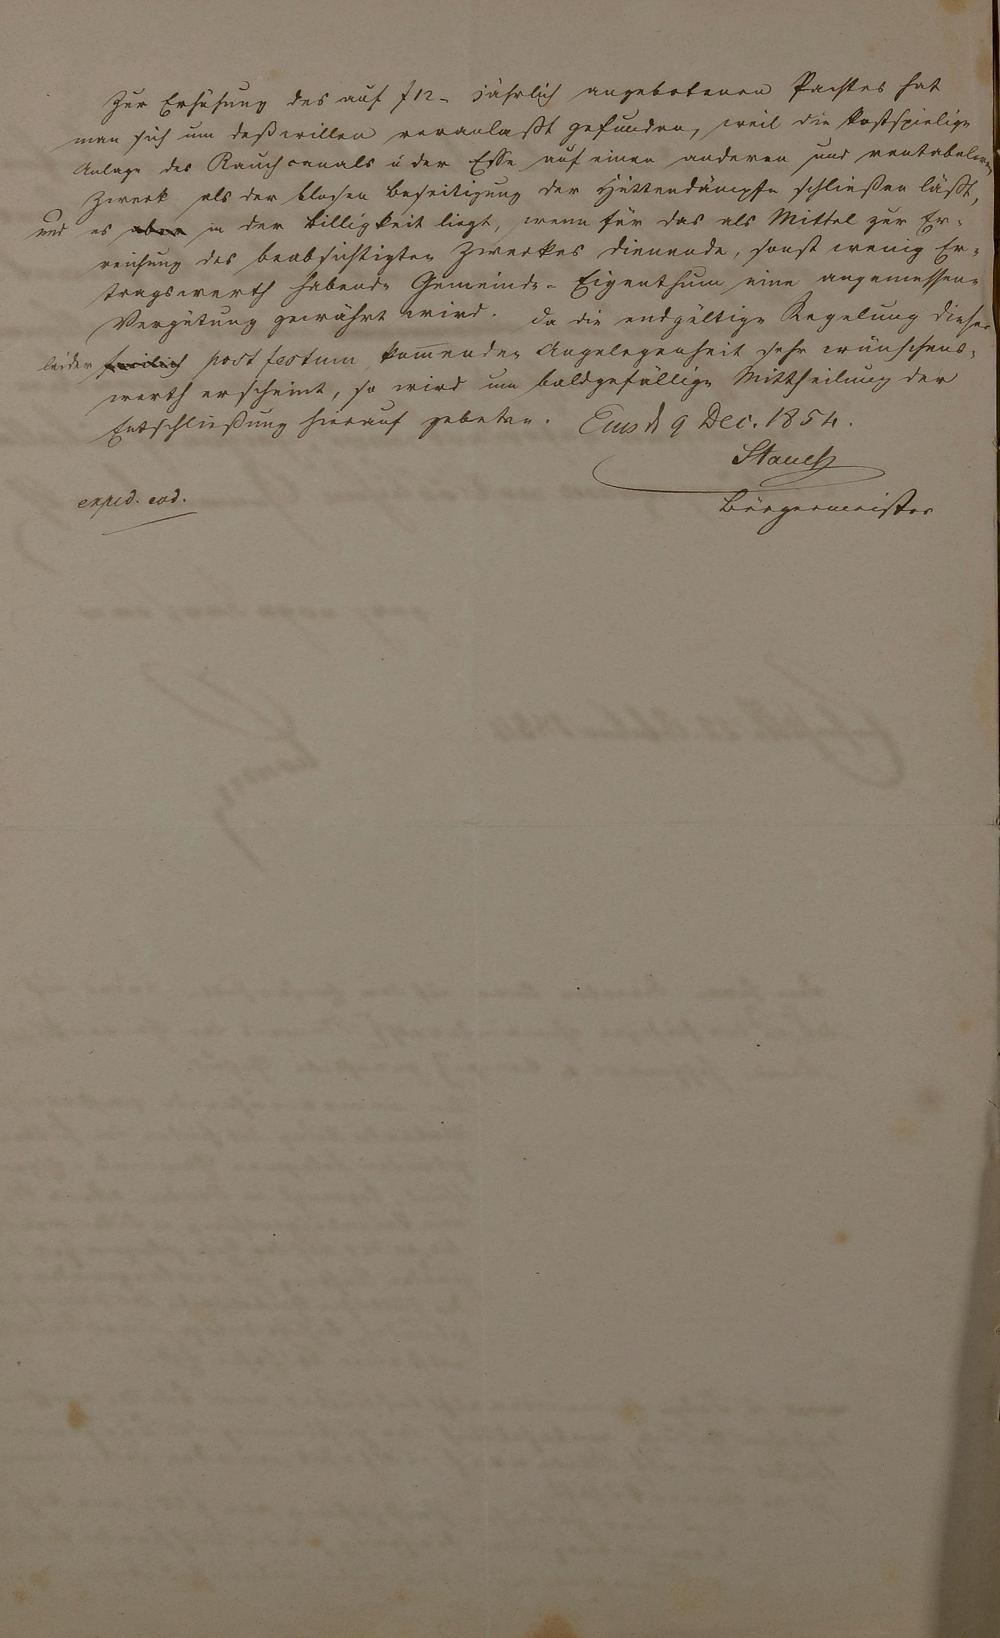 Zur Erhöhung des auf f 12 - jährlich angebotenen Pachtes hat
man sich um deßwillen veranlaßt gefunden, weil die kostspielige
Anlage des Rauchcanals u der Esse auf einen anderen und rentableren
Zweck als der blosen Beseitigung der Hüttendämpfe schließen läßt,
und es aber in der Billigkeit liegt, wenn für das als Mittel zur Er-
reichung des beabsichtigten Zweckes dienende, sonst wenig Er-
tragswerth habende Gemeinde-Eigenthum eine angemessene
Vergütung gewährt wird. Da die endgültige Regelung dieser
leider freilich post festum kommenden Angelegenheit sehr wünschens-
werth erscheint, so wird um baldgefällige Mittheilung der
Entschließung hierauf gebeten. Ems d 9 Dec. 1854.
expid. eod.
Bürgermeister